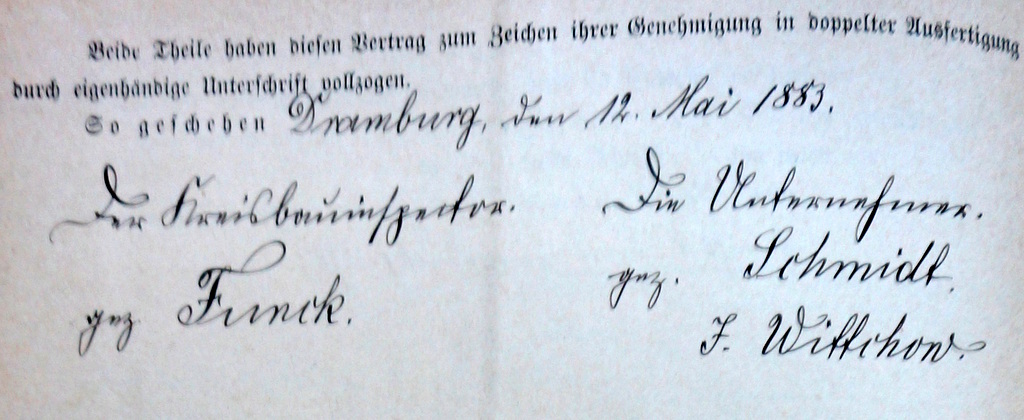 Beide Theile haben diesen Vertrag zum Zeichen ihrer Genehmigung in doppelter Ausfertigung
durch eigenhändige Unterschrift vollzogen.
So geschehen Dramburg, den 12. Mai 1883.
Der Kreisbauinspector.
Die Unternehmer.
gez Funck.
gez. Schmidt.
F. Wittchow.